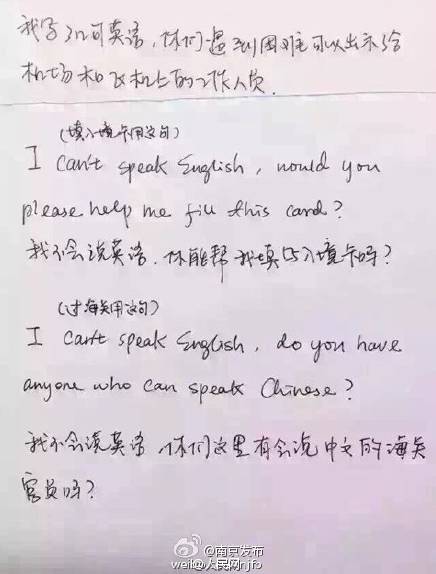 我写了几句英语，你们遇到困难可以出示给
机场和飞机上的工作人员.
(填入境卡用这句)
I can't speak English, would you
please help me fill this card?
我不会说英语.你能帮我填写入境卡吗？
(过海关用这句)
I can't speak English, do you have
anyone who can speak Chinese?
我不会说英语,你们这里有会说中文的海关
官员吗？
@南京发布
weibo.com/njfb